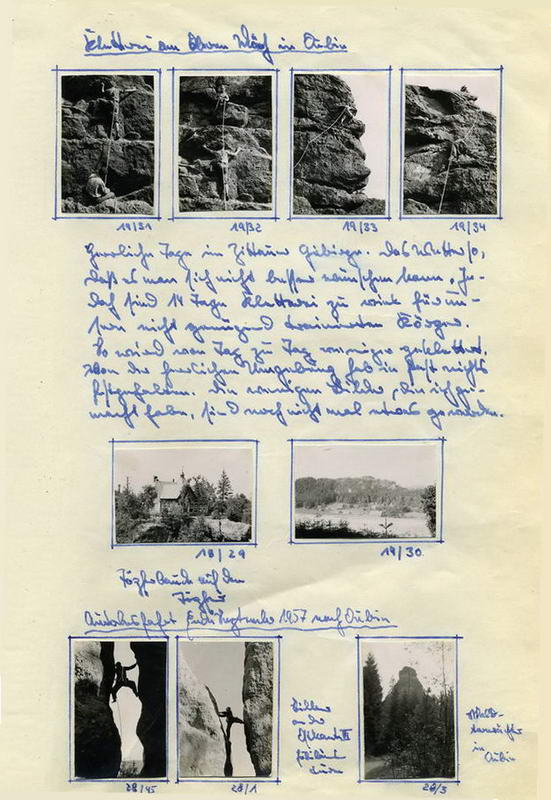 Kletterei am Oberen Mönch in Oybin
19/31 19/32 19/33 19/34
Herrliche Tage im Zittauer Gebirge. Das Wetter so,
daß es man sich nicht besser wünschen kann. Je-
doch sind 14 Tage Kletterei zu viel für un-
sere nicht genügend trainierten Körper.
So wird von Tag zu Tag weniger geklettert.
Von der herrlichen Umgebung hab ich fast nichts
festgehalten. Die wenigen Bilder, die ich ge-
macht habe, sind noch nicht mal etwas geworden.
18/29 19/30
Töpferbaude auf dem
Töpfer
Autobusfahrt Ende September 1957 nach Oybin
Bilder
an der
28/45 28/1 28/3
in
Oybin